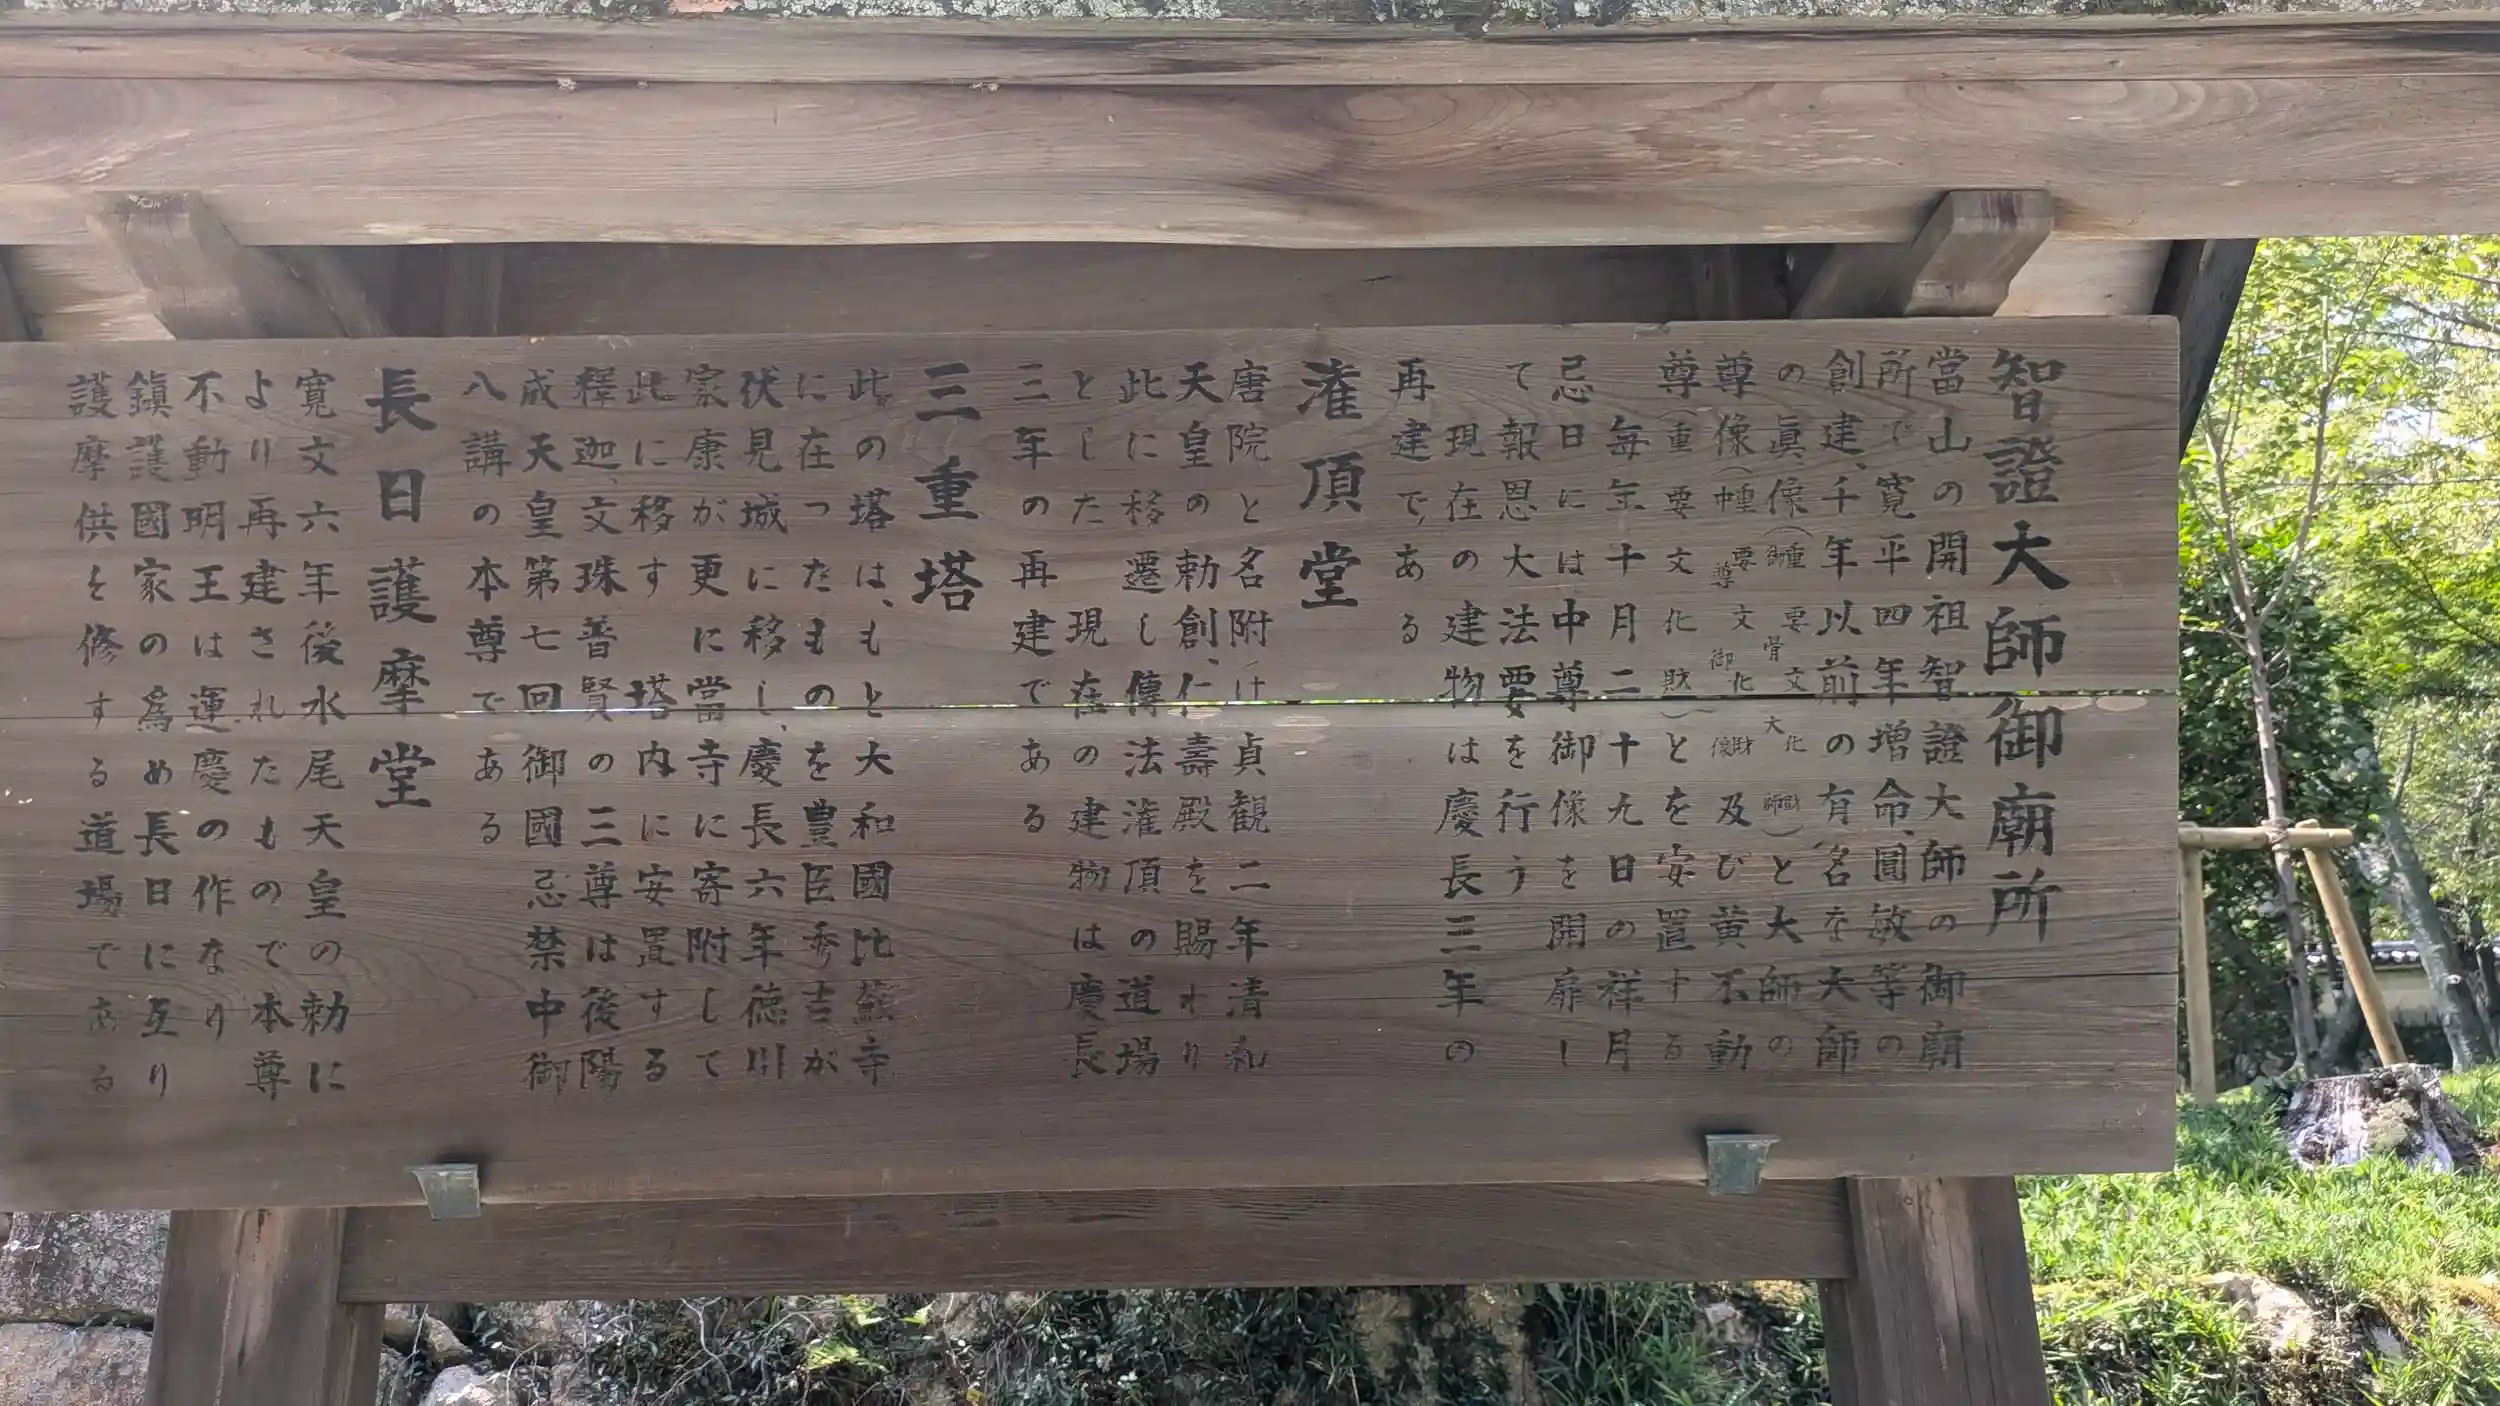 智證大師御廟所
當山の開祖智證大師の御廟
所で寛平四年増命、圓敏等の
創建、千年以前の有名な大師
の眞像（重要文化財 御骨大師）と大師の
尊像（重要文化財 中尊御像）及び黄不動
尊（重要文化財）とを安置する
毎年十月二十九日の祥月
忌日には中尊御像を開扉し
て報恩大法要を行う
現在の建物は慶長三年の
再建で、ある
潅頂堂
唐院と名附け貞観二年清和
天皇の勅創、仁壽殿を賜わり
此に移遷し傳法潅頂の道場
とした現在の建物は慶長
三年の再建である
三重塔
此の塔は、もと大和國比蘇寺
に在つたものを豊臣秀吉が
伏見城に移し、慶長六年徳川
家康が更に當寺に寄附して
此に移す 塔内に安置する
釋迦、文珠普賢の三尊は後陽
成天皇第七回御國忌禁中御
八講の本尊である
長日護摩堂
寛文六年後水尾天皇の勅に
より再建されたもので本尊
不動明王は運慶の作なり
鎮護國家の爲め長日に亙り
護摩供を修する道場である